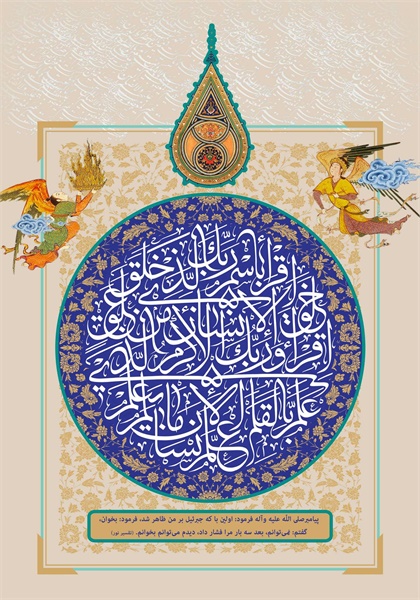 اقرأ باسم ربك الذي خلق
خلق الإنسان من علق
اقرأ وربك الأكرم الذي
علم بالقلم علم الإنسان ما لم يعلم
پیامبر صلی الله علیه وآله فرمود: اولین با که جبرئیل بر من ظاهر شد، فرمود: بخوان،
گفتم: نمی‌توانم، بعد سه بار مرا فشار داد، دیدم می‌توانم بخوانم. (تفسیر نور)